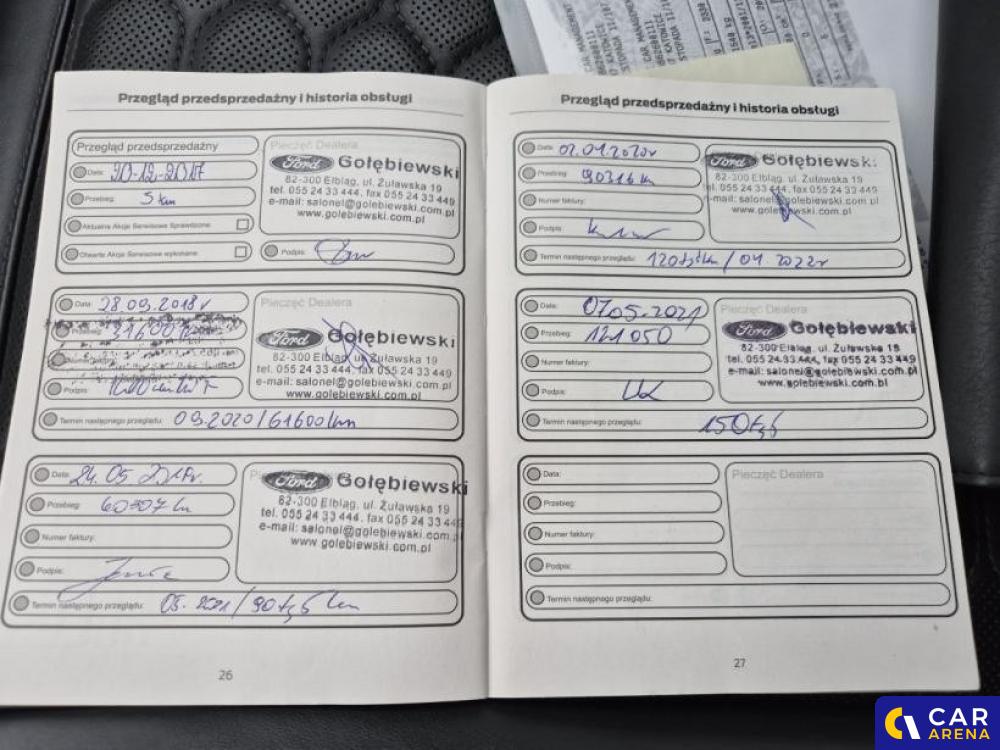 CAR MANAGEMENT
Przegląd przedsprzedażny i historia obsługi
Przegląd przedsprzedażny
Pieczęć Dealera
Data: 20-12-2017
Przebieg: 5 km
Numer
Aktualne Akcje Serwisowe Sprawdzone:
Otwarte Akcje Serwisowe wykonane:
Podpis:
Ford Gołębiewski
82-300 Elbląg, ul. Żuławska 19
tel. 055 24 33 444, fax 055 24 33 449
e-mail: salonel@golebiewski.com.pl
www.golebiewski.com.pl
Data: 28.09.2018r
Przebieg: 31600 km
Numer faktury:
Podpis:
Termin następnego przeglądu: 09.2020/61600km
Pieczęć Dealera
Ford Gołębiewski
82-300 Elbląg, ul. Żuławska 19
tel. 055 24 33 444, fax 055 24 33 449
e-mail: salonel@golebiewski.com.pl
www.golebiewski.com.pl
Data: 24.05
Przebieg: 60307 km
Numer faktury:
Podpis:
Termin następnego przeglądu: 05.2021/90tyś km
Ford Gołębiewski
82-300 Elbląg, ul. Żuławska 19
tel. 055 24 33 444, fax 055 24 33 44
e-mail: salonel@golebiewski.com.pl
www.golebiewski.com.pl
26
Przegląd przedsprzedażny i historia obsługi
Data: 02.01.2020r
Przebieg: 90316 km
Numer faktury:
Podpis:
Termin następnego przeglądu: 120tyś km/01.2022r
Pieczęć Dealera
Ford Gołębiewski
82-300 Elbląg, ul. Żuławska 19
tel. 055 24 33 444, fax 055 24 33 449
e-mail: salonel@golebiewski.com.pl
www.golebiewski.com.pl
Data: 07.05.2021
Przebieg: 121050
Numer faktury:
Podpis:
Termin następnego przeglądu: 150tyś
Pieczęć Dealera
Ford Gołębiewski
82-300 Elbląg, ul. Żuławska 19
tel. 055 24 33 444, fax 055 24 33 449
e-mail: salonel@golebiewski.com.pl
www.golebiewski.com.pl
Data:
Przebieg:
Numer faktury:
Podpis:
Termin następnego przeglądu:
Pieczęć Dealera
27
CAR
ARENA